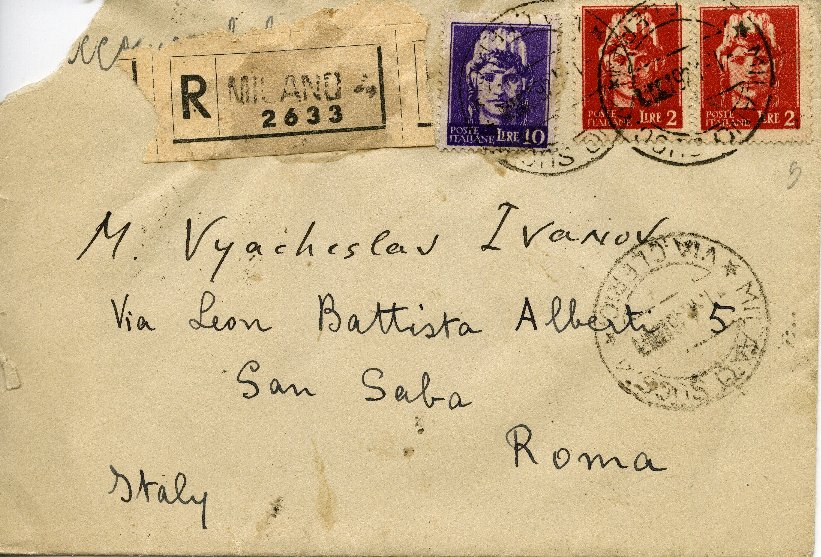 R MILANO 4
2633
POSTE ITALIANE LIRE 10
POSTE ITALIANE LIRE 2
POSTE ITALIANE LIRE 2
M. Vyacheslav Ivanov
Via Leon Battista Alberti 5
San Saba
Roma
Italy
★ MILANO SUCC. 4 ★ VIA CLERICI